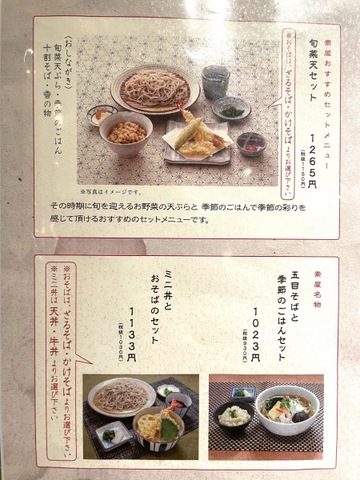 素屋おすすめセットメニュー
旬菜天セット
1265円
(税抜1150円)
※おそばは、ざるそば・かけそばよりお選び下さい
〈おしながき〉
旬菜天ぷら・季節のごはん
十割そば・香の物
※写真はイメージです。
その時期に旬を迎えるお野菜の天ぷらと 季節のごはんで季節の彩りを
感じて頂けるおすすめのセットメニューです。
素屋名物
五目そばと
季節のごはんセット
1023円
(税抜930円)
ミニ丼と
おそばのセット
1133円
(税抜1030円)
※おそばは、ざるそば・かけそばよりお選び下さい
※ミニ丼は 天丼・牛丼 よりお選び下さい